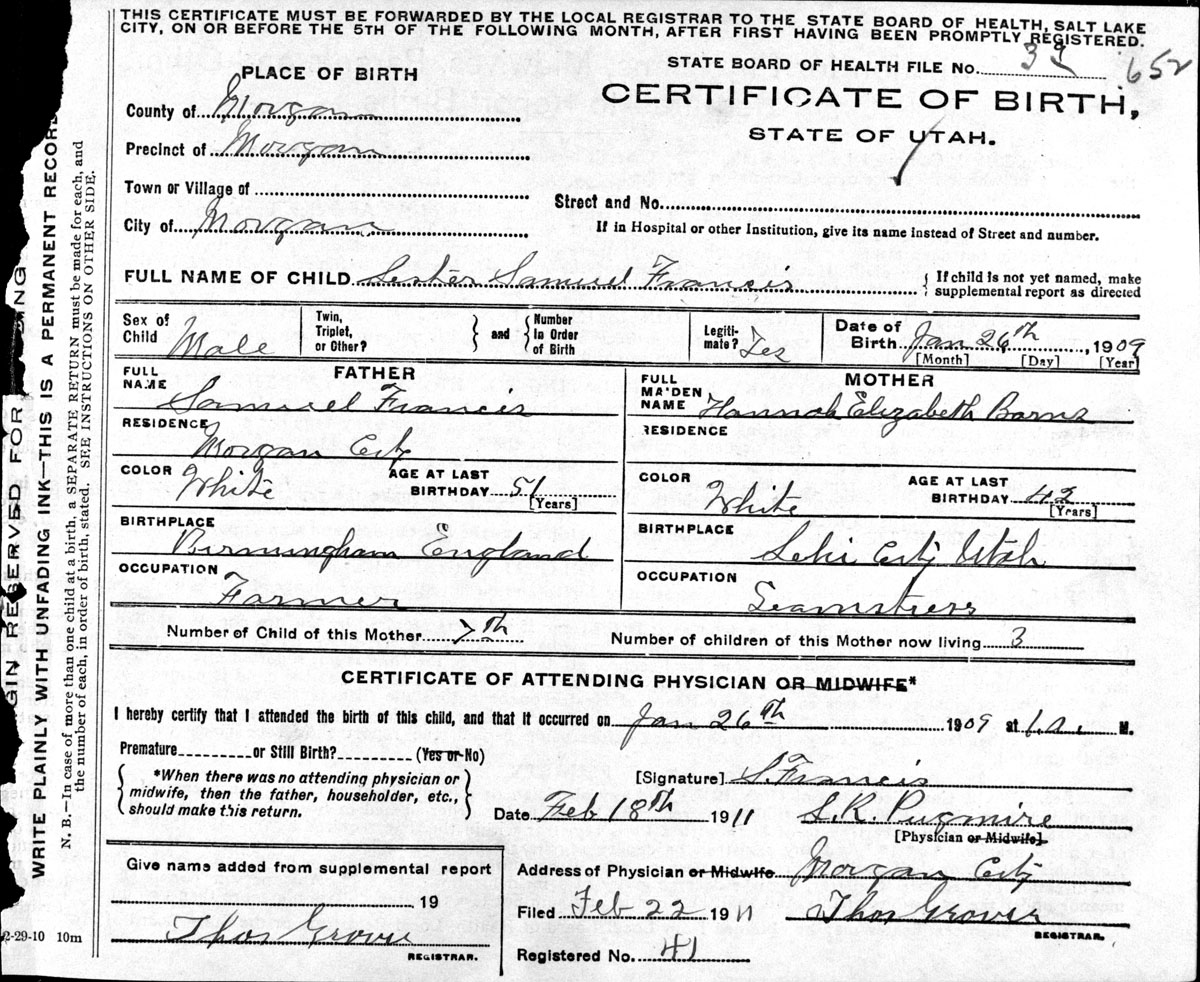 THIS CERTIFICATE MUST BE FORWARDED BY THE LOCAL REGISTRAR TO THE STATE BOARD OF HEALTH, SALT LAKE
CITY, ON OR BEFORE THE 5TH OF THE FOLLOWING MONTH, AFTER FIRST HAVING BEEN PROMPTLY REGISTERED.
PLACE OF BIRTH
STATE BOARD OF HEALTH FILE No. 39 652
County of Morgan
CERTIFICATE OF BIRTH,
STATE OF UTAH.
Precinct of Morgan
Town or Village of
Street and No.
City of Morgan
If in Hospital or other Institution, give its name instead of Street and number.
FULL NAME OF CHILD Lester Samuel Francis { If child is not yet named, make
supplemental report as directed
Sex of Child Male
Twin, Triplet, or Other? } and { Number In Order of Birth
Legiti-mate? Yes
Date of Birth Jan 26th, 1909
[Month] [Day] [Year]
FATHER
FULL NAME Samuel Francis
RESIDENCE Morgan City
COLOR White AGE AT LAST BIRTHDAY 51 [Years]
BIRTHPLACE Birmingham England
OCCUPATION Farmer
MOTHER
FULL MAIDEN NAME Hannah Elizabeth Barns
RESIDENCE
COLOR White AGE AT LAST BIRTHDAY 42 [Years]
BIRTHPLACE Lehi City Utah
OCCUPATION Seamstress
Number of Child of this Mother 7th Number of children of this Mother now living 3
CERTIFICATE OF ATTENDING PHYSICIAN OR MIDWIFE*
I hereby certify that I attended the birth of this child, and that it occurred on Jan 26th 1909 at 1.a. M.
Premature or Still Birth? (Yes or No)
{ *When there was no attending physician or
midwife, then the father, householder, etc.,
should make this return. }
[Signature] S. Francis
Date Feb 18th 1911 S. R. Pugmire
[Physician or Midwife]
Give name added from supplemental report
19
Thos Grover
REGISTRAR.
Address of Physician or Midwife Morgan City
Filed Feb 22 1911 Thos Grover
REGISTRAR.
Registered No. 41
2-29-10 10m
GIN RESERVED FOR
ING
WRITE PLAINLY WITH UNFADING INK—THIS IS A PERMANENT RECORD
N. B.—In case of more than one child at a birth, a SEPARATE RETURN must be made for each, and
the number of each, in order of birth, stated. SEE INSTRUCTIONS ON OTHER SIDE.